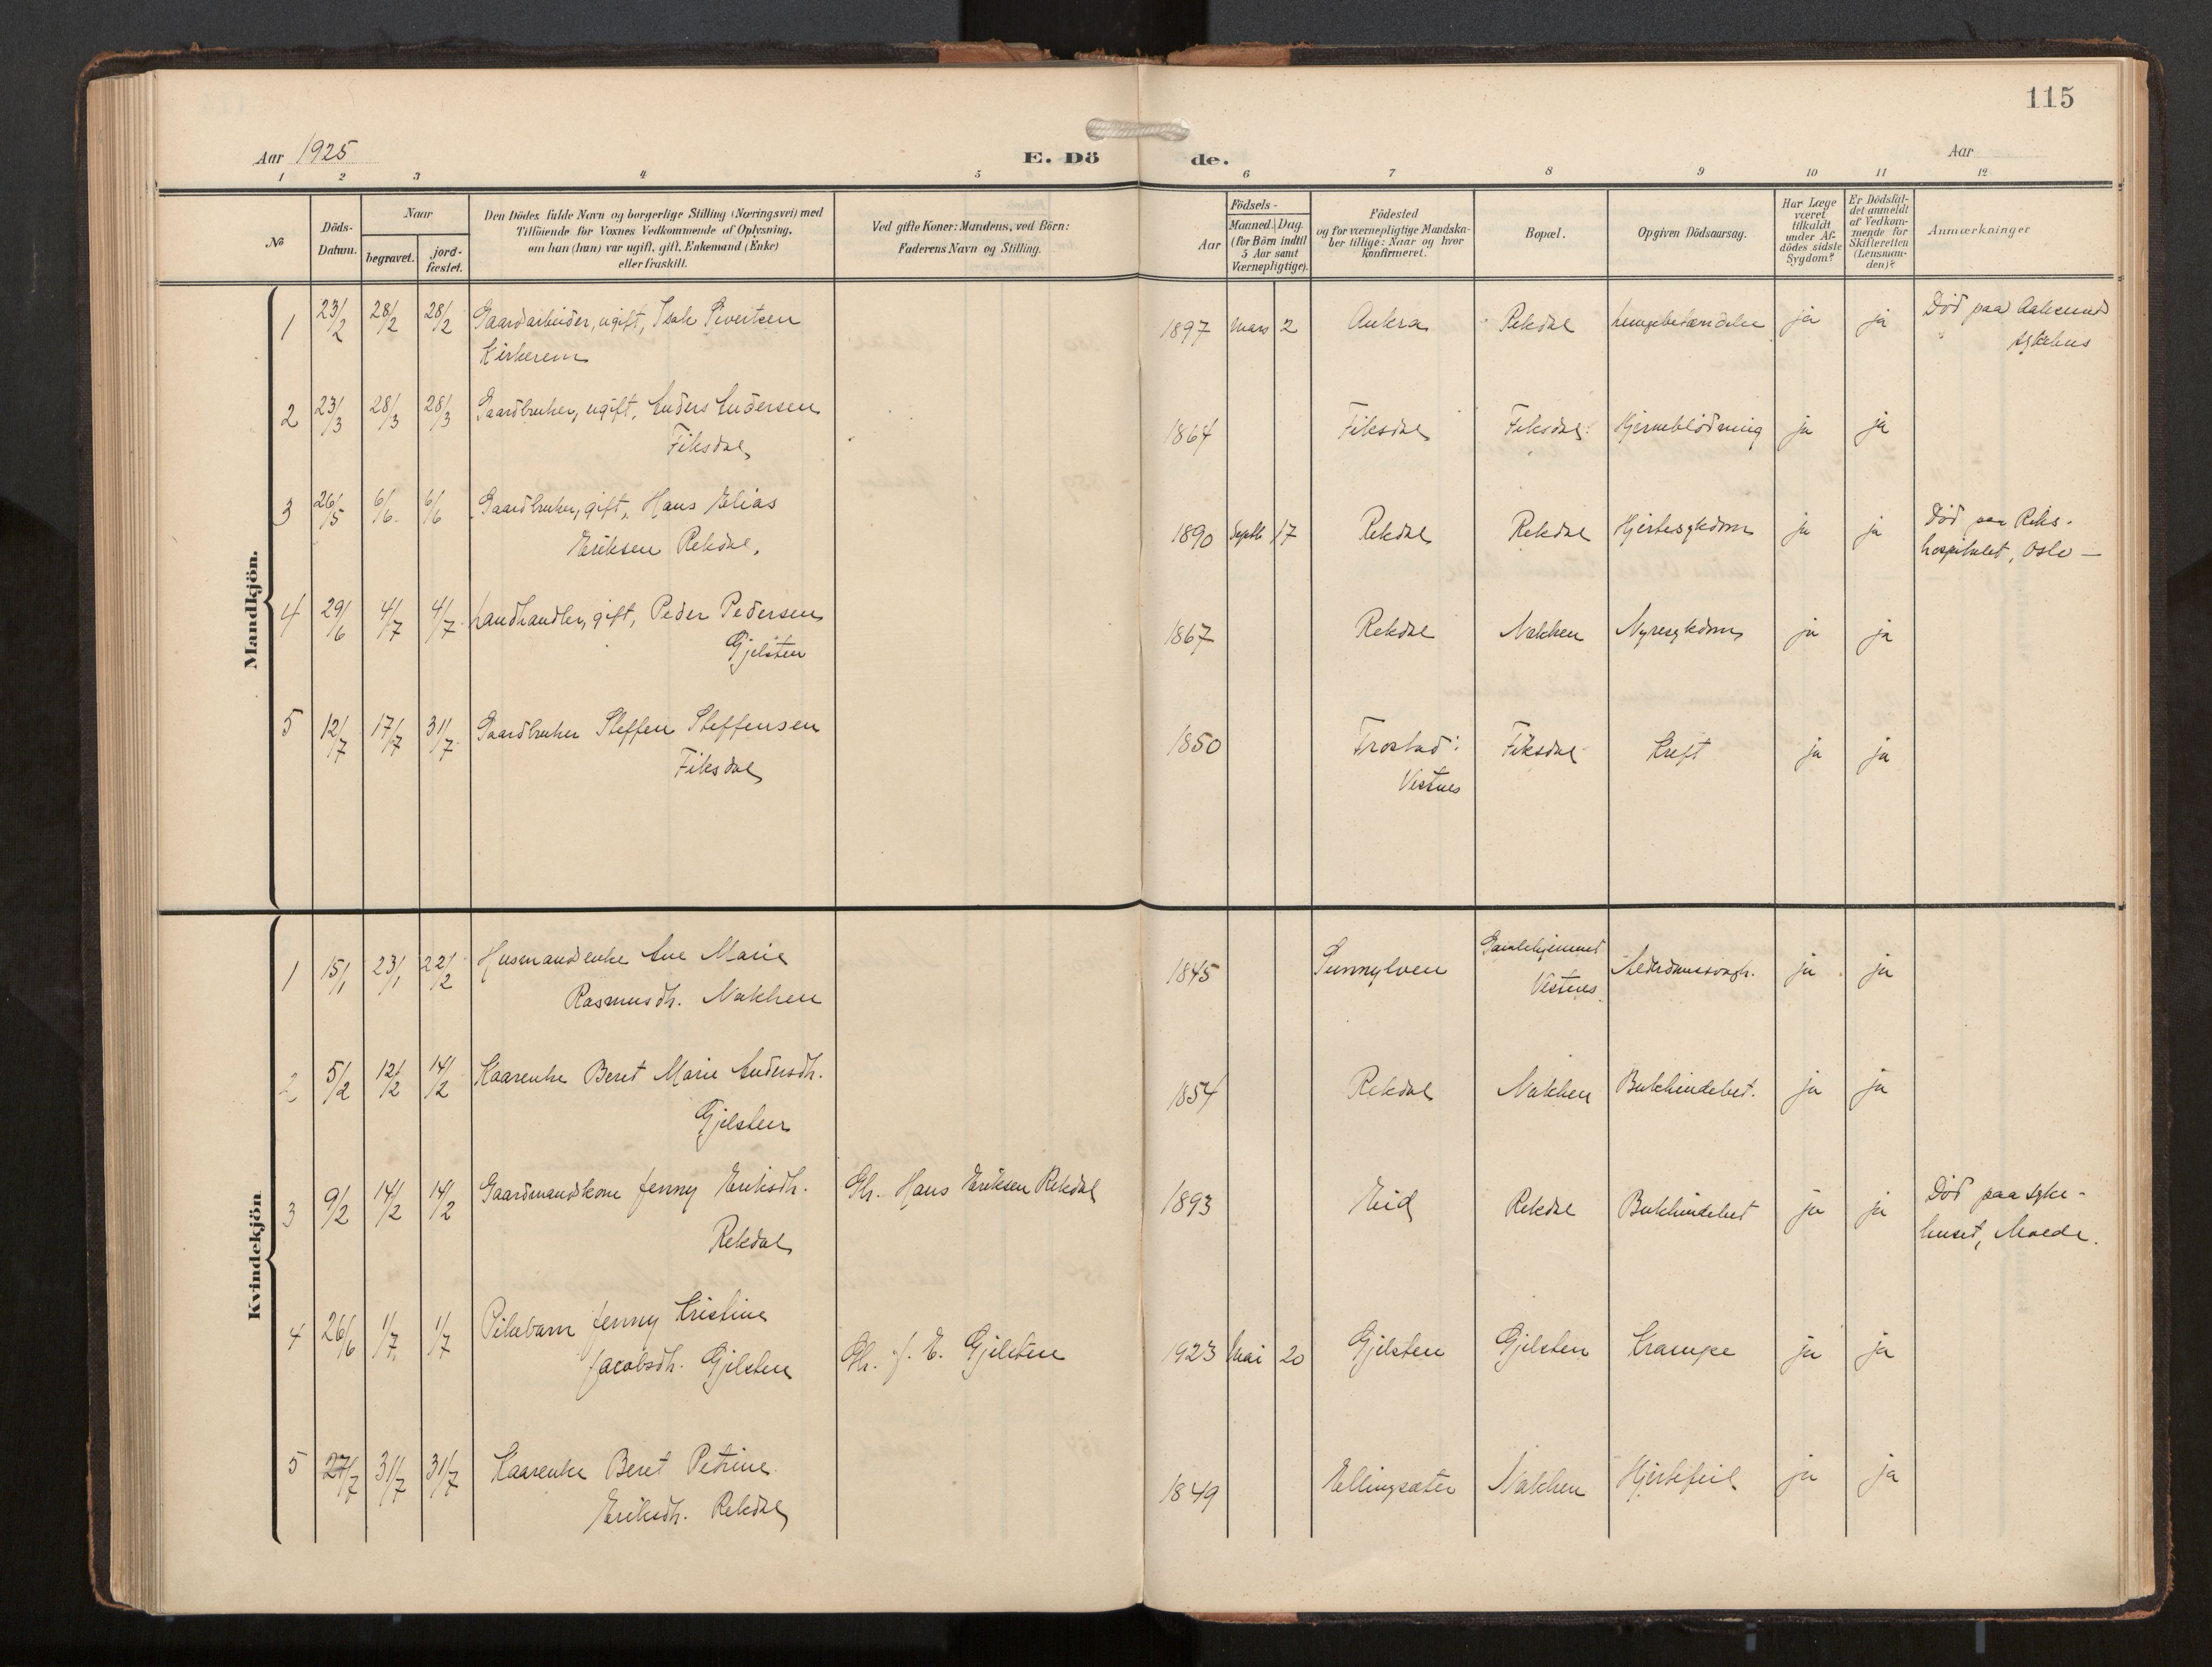 115
Aar 1925
E. Dö
de.
Aar
1 2 3 4 5 6 7 8 9 10 11 12
No
Döds-
Datum.
Naar
begravet.
jord-
fæstet.
Den Dödes fulde Navn og borgerlige Stilling (Næringsvei) med
Tilföiende for Voxnes Vedkommende af Oplysning,
om han (hun) var ugift, gift, Enkemand (Enke)
eller fraskilt.
Ved gifte Koner: Mandens, ved Börn:
Faderens Navn og Stilling.
Födsels-
Aar
Maaned. Dag.
(for Börn indtil
5 Aar samt
Værnepligtige).
Födested
og for værnepligtige Mandska-
ber tillige: Naar og hvor
konfirmeret.
Bopæl.
Opgiven Dödsaarsag.
Har Læge
været
tilkaldt
under Af-
dödes sidste
Sygdom?
Er Dödsfal-
det anmeldt
af Vedkom-
mende for
Skifteretten
(Lensman-
den)?
Anmærkninger
Mandkjön.
1 23/2 28/2 28/2 Gaardarbeider, ugift, Isak Sivertsen 1897 Mars 2 Aukra Rekdal Lungebetændelse ja ja Död paa Aalesund
Kirkerem
sykehus
2 23/3 28/3 28/3 Gaardbruker, ugift, Anders Andersen 1864 Fiksdal Fiksdal Hjerneblödning ja ja
Fiksdal
3 26/5 6/6 6/6 Gaardbruker, gift, Hans Elias 1890 Septb 17 Rekdal Rekdal Hjertesykdom ja ja Död paa Riks-
Eriksen Rekdal.
hospitalet, Oslo —
4 29/6 4/7 4/7 Landhandler, gift, Peder Pedersen 1867 Rekdal Nakken Nyresykdom ja ja
Gjelsten
5 12/7 17/7 31/7 Gaardbruker Steffen Steffensen 1850 Frostad: Fiksdal Kreft ja ja
Fiksdal
Vestnes
Kvindekjön
1 15/1 23/1 22/2 Husmandsenke Ane Marie 1845 Sunnylven Gamlehjemmet Alderdomssvagh. ja ja
Rasmusdh. Nakken
Vestnes.
2 5/2 12/2 14/2 Kaarenke Beret Marie Andersdh. 1854 Rekdal Nakken Bukhindebet. ja ja
Gjelsten
3 9/2 14/2 14/2 Gaardmandskone Jenny Eriksdh. Gbr. Hans Eriksen Rekdal 1893 Eid Rekdal Bukhindebet ja ja Död paa syke-
Rekdal
huset, Molde.
4 26/6 1/7 1/7 Pikebarn Jenny Kristine
Jacobsdh. Gjelsten Gbr. J. E. Gjelsten 1923 Mai 20 Gjelsten Gjelsten Krampe ja ja
5 27/7 31/7 31/7 Kaarenke Beret Petrine 1849 Ellingsæter Nakken Hjertefeil ja ja
Eriksdh. Rekdal